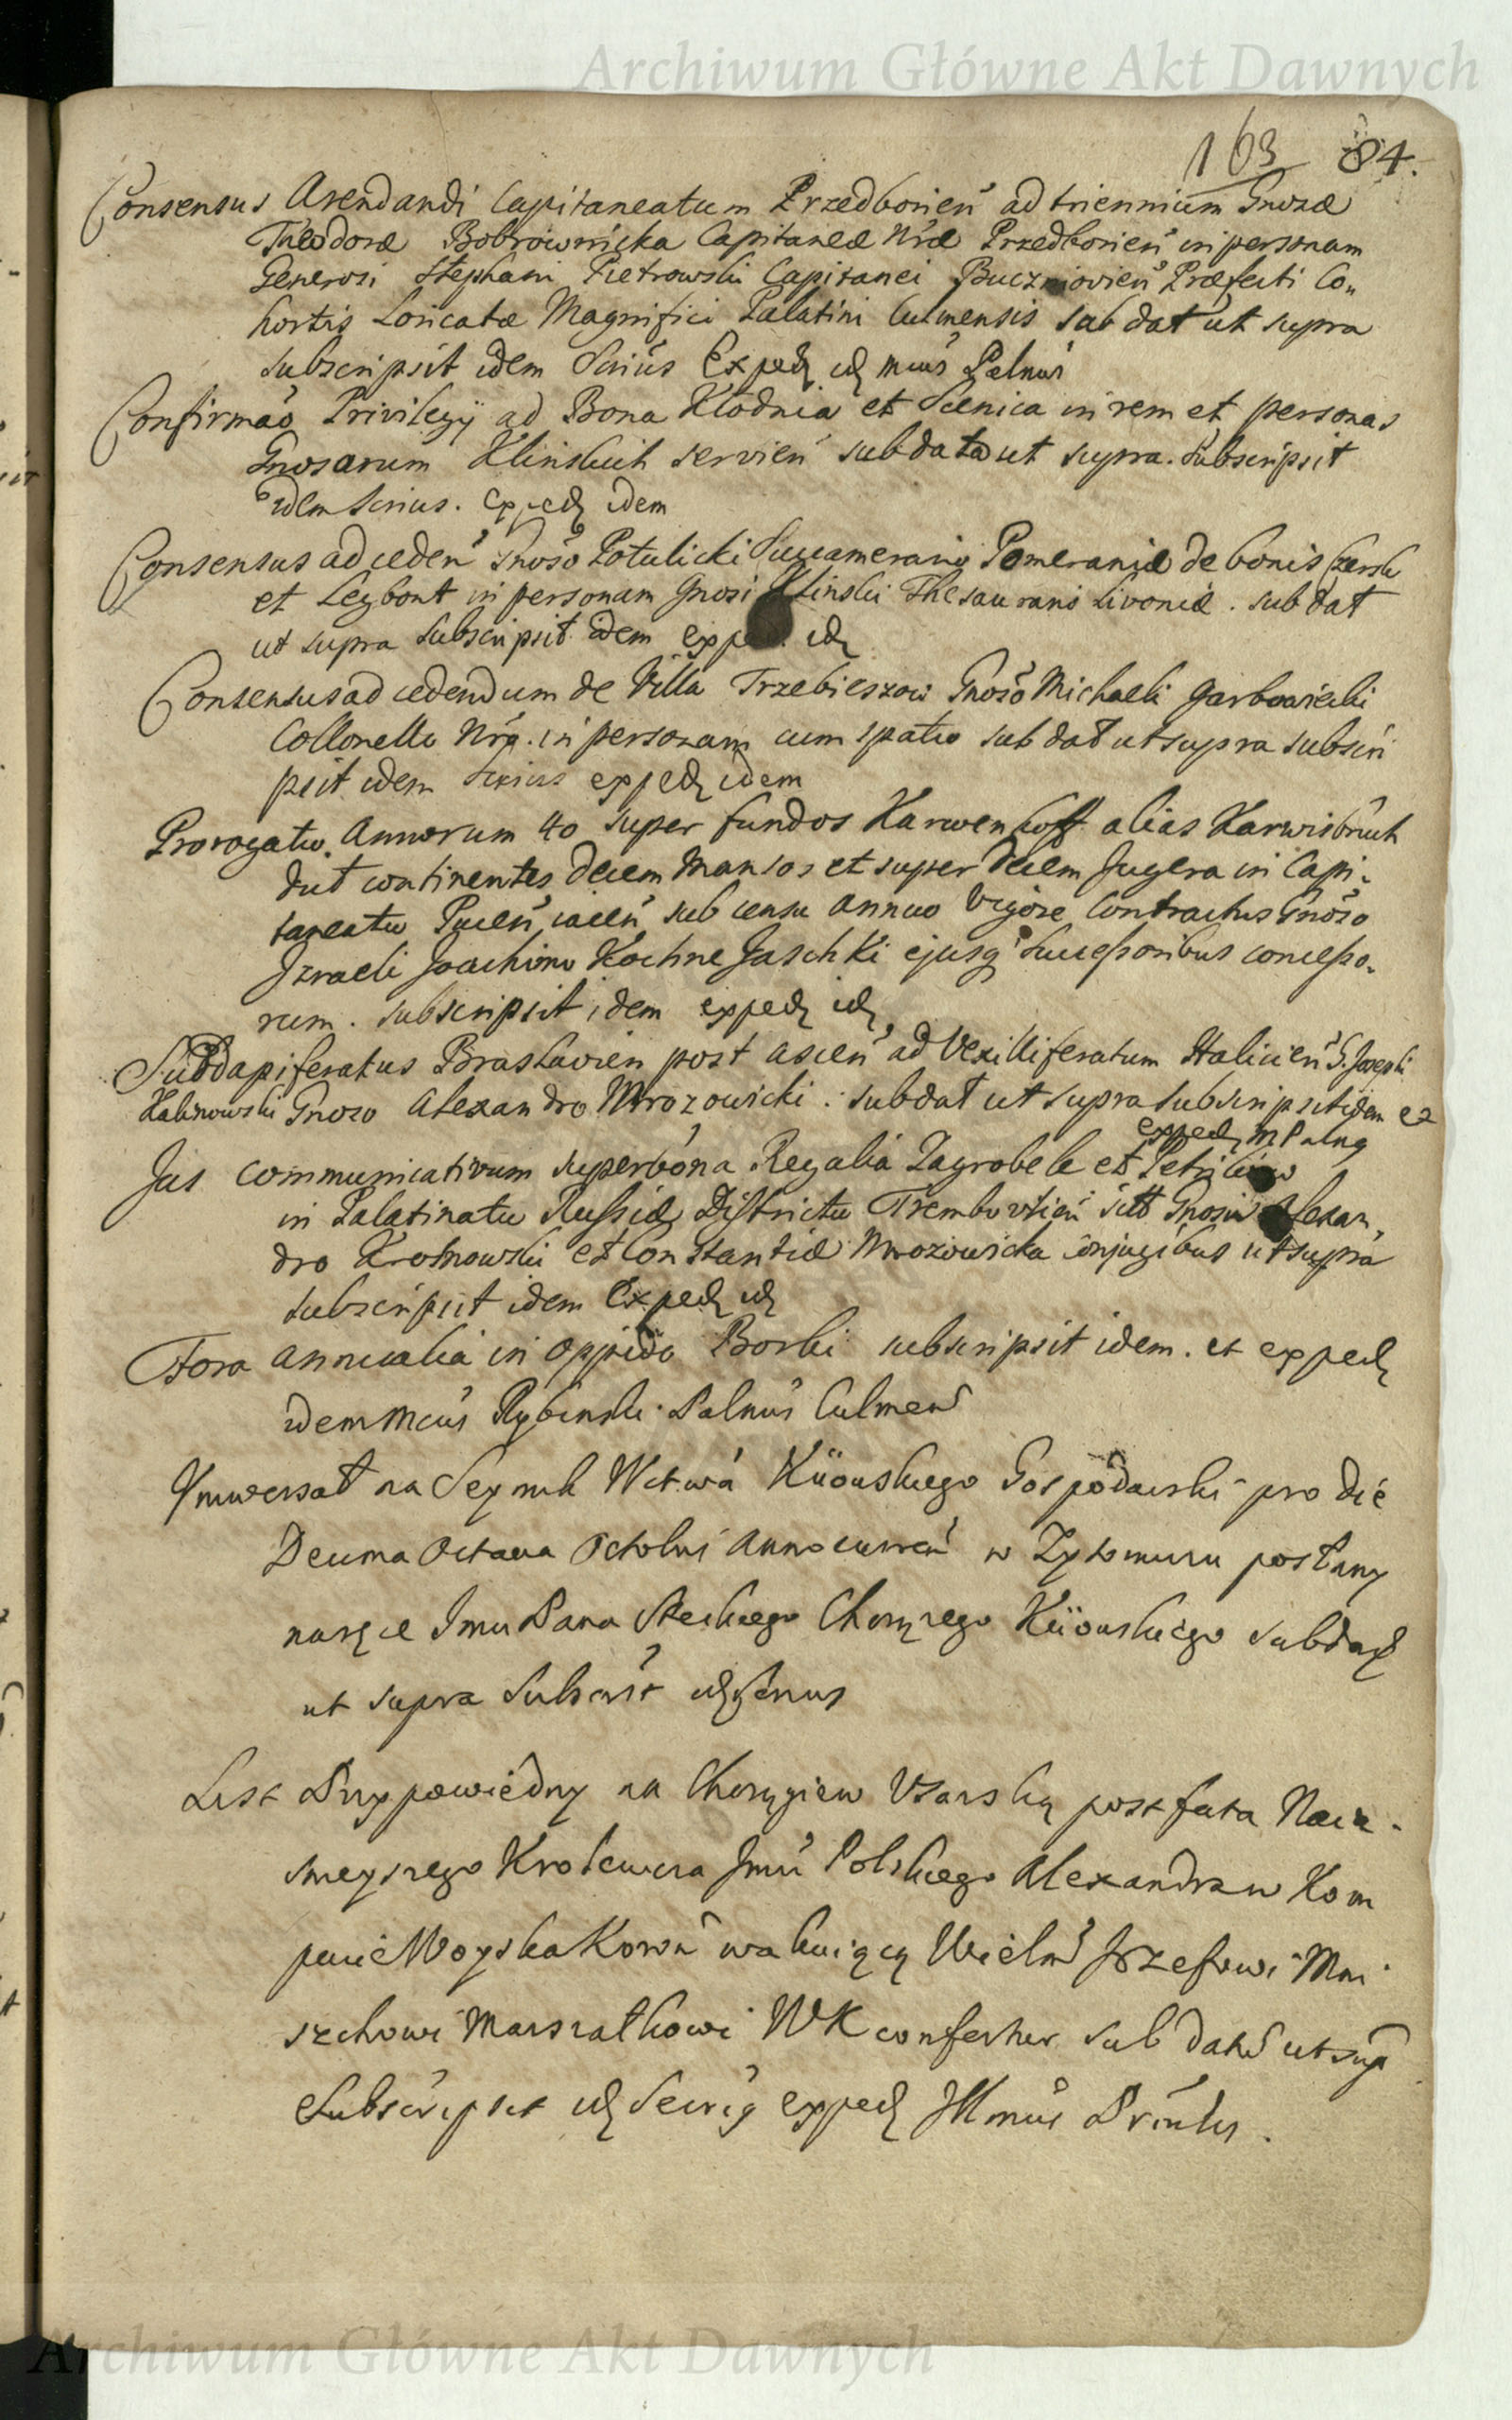 Archiwum Główne Akt Dawnych
163 84.
Consensus Arendandi Capitaneatum Przedborień ad triennium Gnosæ
Theodoræ Bobrownicka Capitaneæ Nræ Przedborień in personam
Generosi Stephani Pietrowski Capitanei Buczniovień Præfecti Co„
hortis Loricatæ Magnifici Palatini Culmensis sub dat ut supra
subscripsit idem Scrius Exped id Mcus Palnus
Confirmao Privilegÿ ad Bona Kłodnia et Scenica in rem et personas
Gnosarum Klinskich servień sub data ut supra. Subscripsit
idem Scrius. exped idem
Consensus ad ceden Gnoso Potulicki Succamerario Pomeraniæ de bonis Czersk
et Legbont in personam Gnosi Klinski Thesaurario Livoniæ. sub dat
ut supra subscripsit idem exped id
Consensus ad cedendum de Villa Trzebieszow Gnoso Michaeli Garbowiecki
Collonello Nro. in personam cum spatio sub dat ut supra subscri
psit idem Scrius exped idem
Prorogatio Annorum 40 super fundos Karwenhoff alias Karwisbruch
dut continentes decem Mansos et super decem Jugera in Capi-
taneatu Pucen iacen sub censu annuo vigore Contractus Gnoso
Izraeli Joachimo Kochne Jaschki ejusq Successoribus concesso-
rum. subscripsit idem exped id
Subdapiferatus Braslavien post ascen ad Vexilliferatum Halicien G. Josephi
Kalinowski Gnoso Alexandro Mrozowicki: sub dat ut supra subscripsit idem et
exped M Palng
Jus communicativum super bona Regalia Zagrobele et
in Palatinatu Russiæ Districtu Trembovlien sitt Gnosis Alexan-
dro Krosnowski et Constantiæ Mrozowicka conjugibus ut supra
subscripsit idem Exped id
Fora annualia in oppido Borki subscripsit idem. et exped
idem Mcus Rybinski Palnus Culmen
Vniwersał na Seymik Wctwa Kiiowskiego Gospodarski pro die
Decima Octava Octobris Anno curren w Zytomiru posłany
na ręce Jmu Pana Steckiego Chorązego Kiiowskiego sub dat
ut supra Subscrst id Scrius
List Przypowiedny na Chorągiew Vsarską post fata Naia-
snieyszego Krolewica Jmci Polskiego Alexandra w Kom
puucie Woyska Koron wakuiącą Wielm Jozefowi Mni
szchowi Marszałkowi WK confertur sub dat ut supa
Subscripsit id Secrig exped Jllmus Princeps.
Archiwum Główne Akt Dawnych